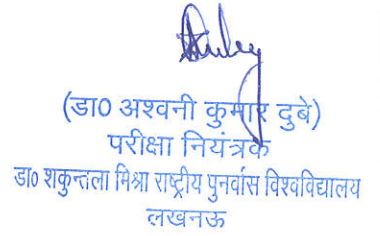 (डा0 अश्वनी कुमार दुबे)
परीक्षा नियंत्रक
डा0 शकुन्तला मिश्रा राष्ट्रीय पुनर्वास विश्वविद्यालय
लखनऊ